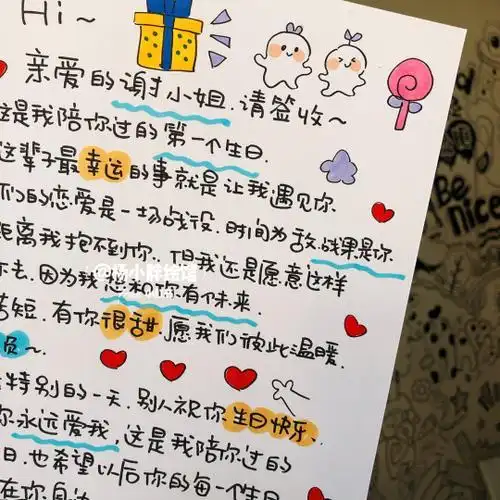 Hi~
亲爱的谢小姐.请签收~
这是我陪你过的第一个生日.
这辈子最幸运的事就是让我遇见你.
们的恋爱是一场战役.时间为敌.战果是你.
距离我抱不到你.但我还是愿意这样
去.因为我想和你有个未来.
苦短.有你很甜.愿我们彼此温暖.
负~
特别的一天.别人祝你生日快乐.
你永远爱我,这是我陪你过的
日.也希望以后你的每一个生日
在你身边
Be
Nice